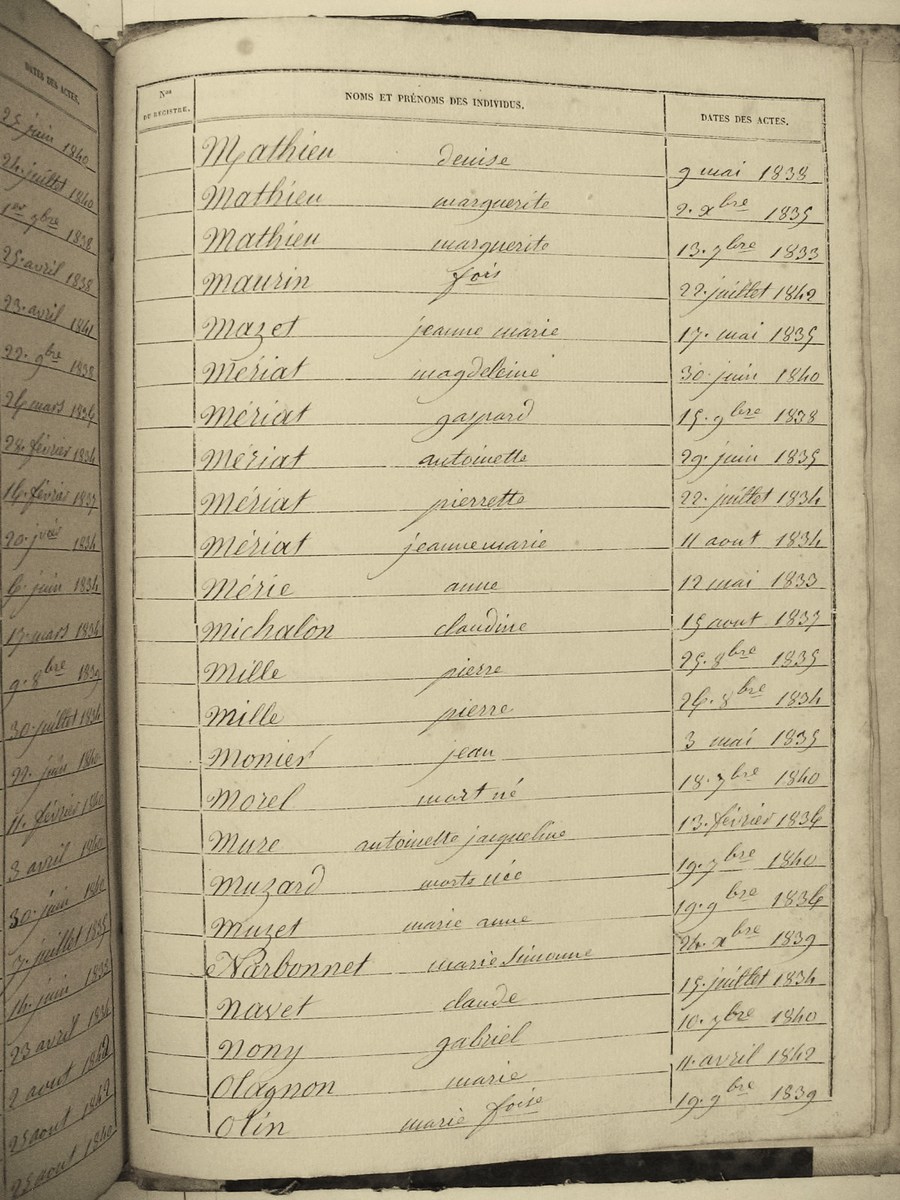 DATES DES ACTES.
25 juin 1840
24 juillet 1840
1er 9bre 1838
25 avril 1838
23 avril 1841
22 9bre 1838
28 février 1834
6 juin 1834
9 8bre 1839
30 juillet 1834
11 février 1840
3 avril 1840
30 juin 1840
7 juillet 1835
23 avril 1834
2 aout 1842
25 aout 1842
25 aout 1840
Nos DU REGISTRE. NOMS ET PRÉNOMS DES INDIVIDUS. DATES DES ACTES.
Mathieu denise 9 mai 1838
Mathieu marguerite 2. xbre 1835
Mathieu marguerite 13. 7bre 1833
Maurin fois 22. juillet 1842
Mazet jeanne marie 17. mai 1835
Mériat magdeleine 30. juin 1840
Mériat gaspard 15. 9bre 1838
Mériat antoinette 29. juin 1835
Mériat pierrette 22. juillet 1834
Mériat jeanne marie 11 aout 1834
Mérie anne 12 mai 1833
Michalon claudine 15 aout 1837
Mille pierre 25. 8bre 1835
Mille pierre 26. 8bre 1834
Monier jean 3 mai 1835
Morel mort né 18. 7bre 1840
Mure antoinette jacqueline 13. février 1836
Muzard morte née 19. 7bre 1840
Muzet marie anne 19. 9bre 1836
Narbonnet marie Simonne 24. xbre 1839
Navet claude 15. juillet 1834
Nony gabriel 10. 7bre 1840
Olagnon marie 11. avril 1842
Olin marie foise 19. 9bre 1839